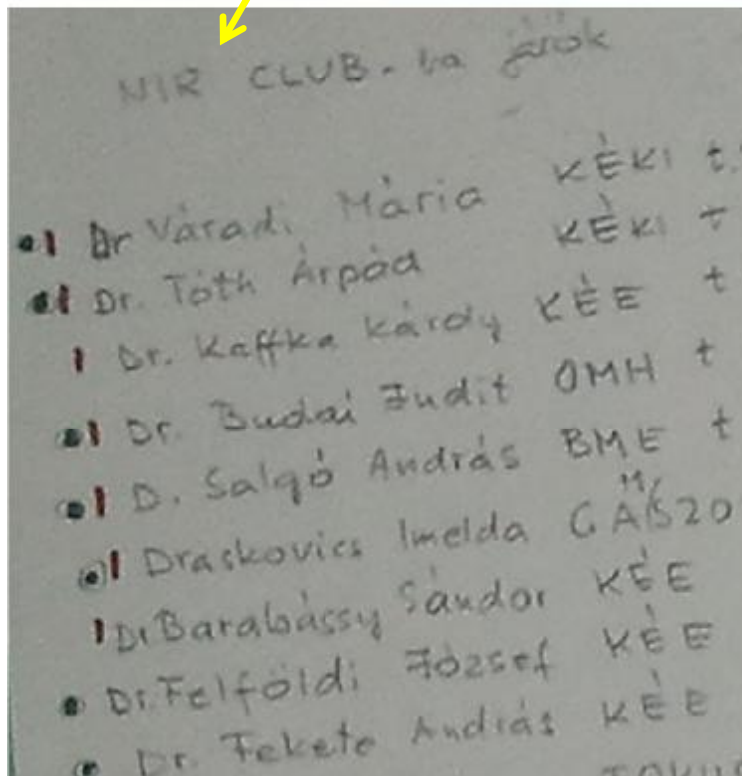 NIR CLUB-ba járók
Dr Váradi Mária KÉKI t.
Dr. Tóth Árpád KÉKI t
Dr. Kaffka Károly KÉE t
Dr. Budai Judit OMH t
D. Salgó András BME t
Draskovics Imelda
Dr Barabássy Sándor KÉE
Dr. Felföldi József KÉE
Dr. Fekete András KÉE